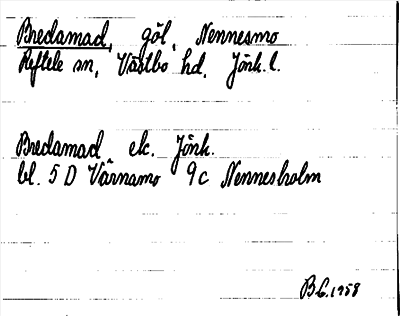 Bredamad, göl, Nennesmo
Reftele sn, Västbo hd, Jönk. l.
Bredamad ek. Jönk.
bl. 5 D Värnamo 9c Nennesholm
B.G. 1958